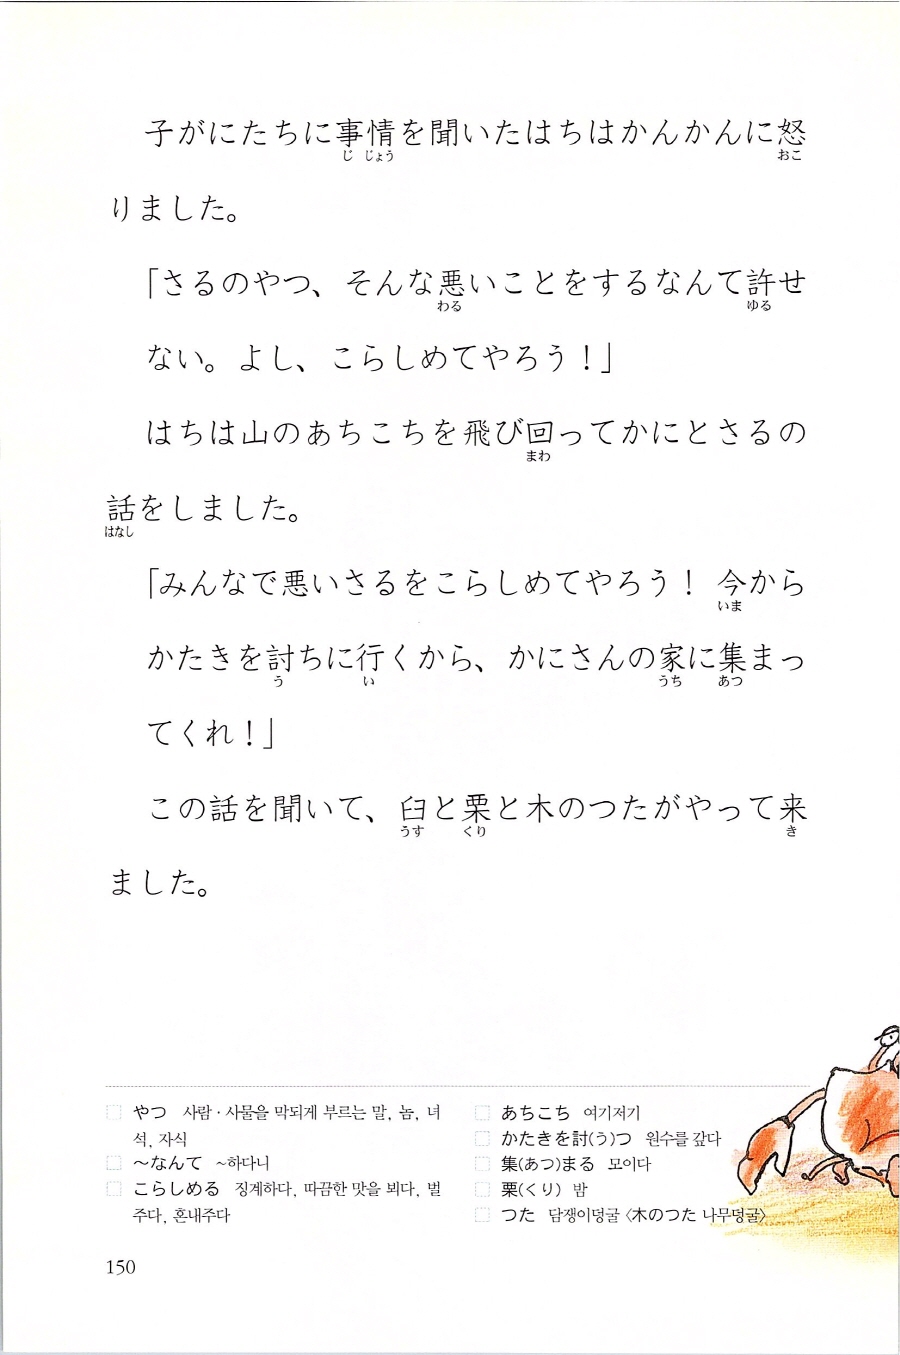 子がにたちに事情を聞いたはちはかんかんに怒
じ じょう おこ
りました。
「さるのやつ、そんな悪いことをするなんて許せ
わる ゆる
ない。よし、こらしめてやろう！」
はちは山のあちこちを飛び回ってかにとさるの
まわ
話をしました。
はなし
「みんなで悪いさるをこらしめてやろう！ 今から
いま
かたきを討ちに行くから、かにさんの家に集まっ
う い うち あつ
てくれ！」
この話を聞いて、臼と栗と木のつたがやって来
うす くり き
ました。
やつ 사람·사물을 막되게 부르는 말, 놈, 녀
석, 자식
～なんて ~하다니
こらしめる 징계하다, 따끔한 맛을 뵈다, 벌
주다, 혼내주다
あちこち 여기저기
かたきを討(う)つ 원수를 갚다
集(あつ)まる 모이다
栗(くり) 밤
つた 담쟁이덩굴 〈木のつた 나무덩굴〉
150